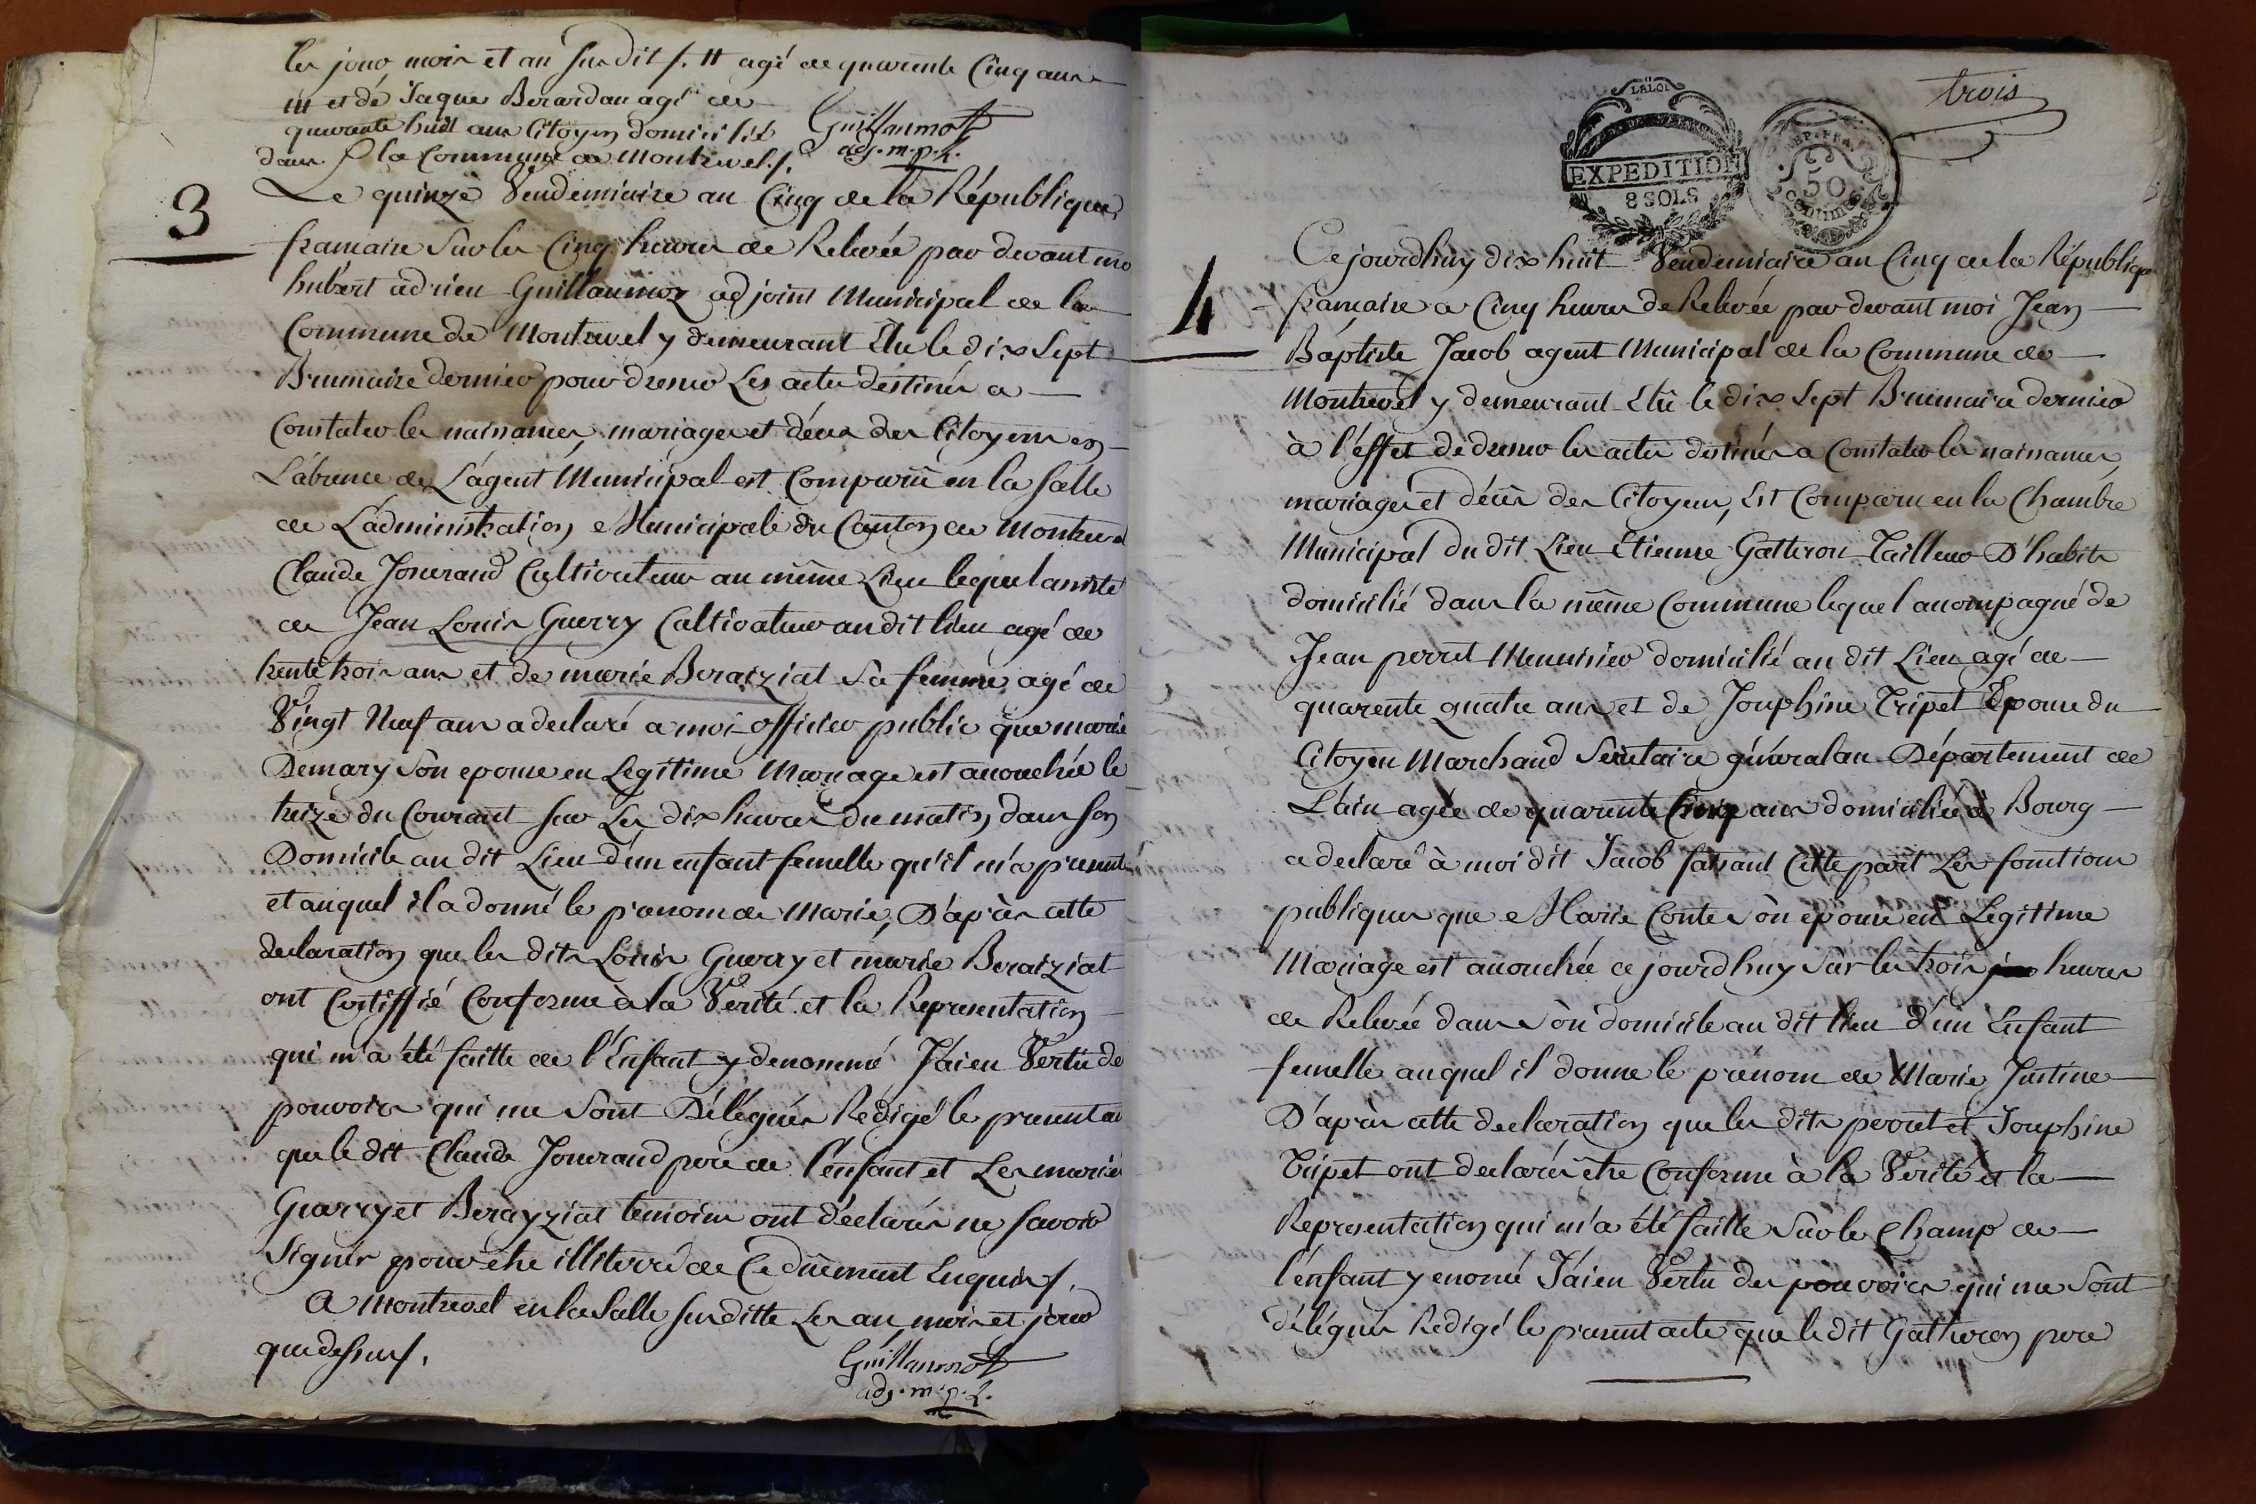 les jour mois et an susdit /. # agé de quarente Cinq ans
/// et de Jaque Berardan agé de
quarente huit ans Citoyen domicilié
dans la Commune de Montrevel /.
Guillaumot
adj. m. p. l.
3
Le quinze Vendemiaire an Cinq de la République
francaise Sur les Cinq heures de Relevée par devant moi
hubert adrien Guillaumoz adjoint Municipal de la
Commune de Montrevel y demeurant Elu le dix Sept
Brumaire dernier pour dresser Les actes destinés a
Constater les naissances, mariages et décès des Citoyens en
L'absence de L'agent Municipal est Comparüe en la Salle
de L'administration Municipale du Canton de Montrevel
Claude Jouvrand Cultivateur au même Lieu lequel assisté
de Jean Louis Guerry Cultivateur au dit lieu agé de
trente trois ans et de marie Beraiziat Sa femme agé de
Vingt Neuf ans a declaré a moi officier public que marie
Demary Son epouse en Legitime Mariage est accouchée le
treize du Courant Sur Les dix heures du matin dans Son
Domicile au dit Lieu d'un enfant femelle qu'il m'a presenté
et auquel il a donné le prenom de Marie, D'après cette
declaration que les dits Louis Guerry et marie Beraiziat
ont Certiffié Conforme à la Verité et la Representation
qui m'a été faitte de l'Enfant y denommé J'ai en Vertu de
pouvoirs qui me Sont Délégués Rédigé le present acte
que le dit Claude Jouvrand pere de l'enfant et Les mariés
Guerry et Berayziat temoins ont déclarés ne Savoir
Signer pour être illiterré de Ce duement Enquis /.
A Montrevel en la Salle Susditte Les an, mois et jour
que dessus /.
Guillaumot
adj. m. p. l.
trois
LA LOI
EXPEDITION
8 SOLS
REP. FRA.
50
Centimes
4
Ce jourdhuy dix huit Vendemiaire an Cinq de la République
francaise a Cinq heures de Relevée par devant moi Jean
Baptiste Jacob agent Municipal de la Commune de
Montrevel y demeurant Elü le dix Sept Brumaire dernier
à l'effet de dresser les actes destinés a Constater les naissances,
mariages et décès des Citoyens, Est Comparu en la Chambre
Municipal du dit Lieu Etienne Gatteron Tailleur D'habits
domicilié dans la même Commune lequel accompagné de
Jean perret Menuisier domicilié au dit Lieu agé de
quarente quatre ans et de Josephine Tripet Epouse du
Citoyen Marchand Secretaire général au Département de
L'ain agée de quarente Cinq ans domiciliée à Bourg
a declaré à moi dit Jacob faisant Cette part Les fonctions
publiques que Marie Conte Sòn epouse en Legitime
Mariage est accouchée ce jourdhuy Sur les trois heures
de Relevée dans Sòn domicile au dit lieu d'un Enfant
femelle auquel il donne le prénom de Marie Justine
D'après cette declaration que les dits perret et Josephine
Tripet ont declarés être Conforme à la Verité et la
Representation qui m'a été faitte Sur le Champ de
l'enfant y enomé J'ai en Vertu des pouvoirs qui me Sont
délégués Redigé le present acte que le dit Gatteron pere